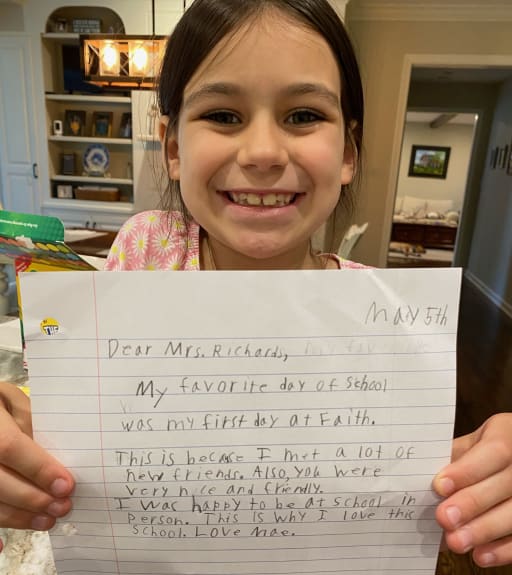 May 5th
Dear Mrs. Richards,
My favorite day of school
was my first day at Faith.
This is becase I met a lot of
new friends. Also, you were
very nice and friendly.
I was happy to be at school in
Person. This Is why I love this
School. Love Mae.